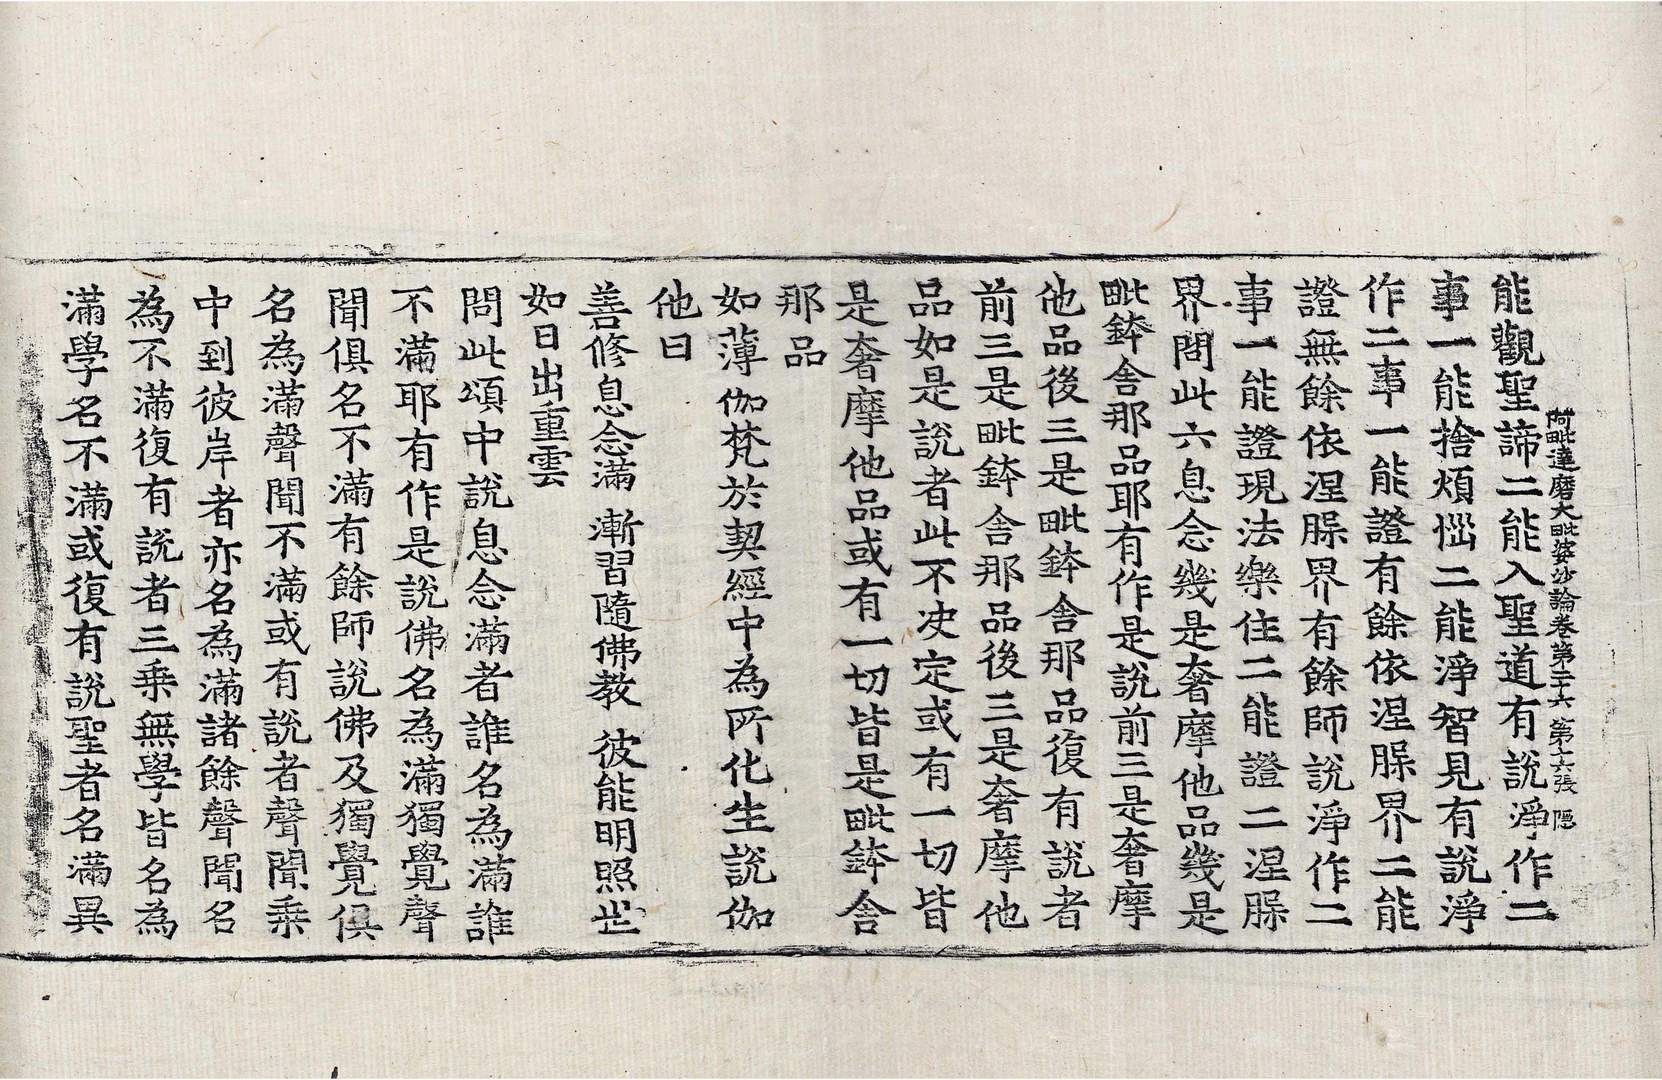 阿毗達磨大毗婆沙論卷第二十六 第六張 隱
能觀聖諦二能入聖道有說淨作二
事一能捨煩惱二能淨智見有說淨
作二事一能證有餘依涅槃界二能
證無餘依涅槃界有餘師說淨作二
事一能證現法樂住二能證二涅槃
界問此六息念幾是奢摩他品幾是
毗鉢舍那品耶有作是說前三是奢摩
他品後三是毗鉢舍那品復有說者
前三是毗鉢舍那品後三是奢摩他
品如是說者此不決定或有一切皆
是奢摩他品或有一切皆是毗鉢舍
那品
如薄伽梵於契經中為所化生說伽
他曰
善修息念滿 漸習隨佛教 彼能明照世
如日出重雲
問此頌中說息念滿者誰名為滿誰
不滿耶有作是說佛名為滿獨覺聲
聞俱名不滿有餘師說佛及獨覺俱
名為滿聲聞不滿或有說者聲聞乘
中到彼岸者亦名為滿諸餘聲聞名
為不滿復有說者三乘無學皆名為
滿學名不滿或復有說聖者名滿異